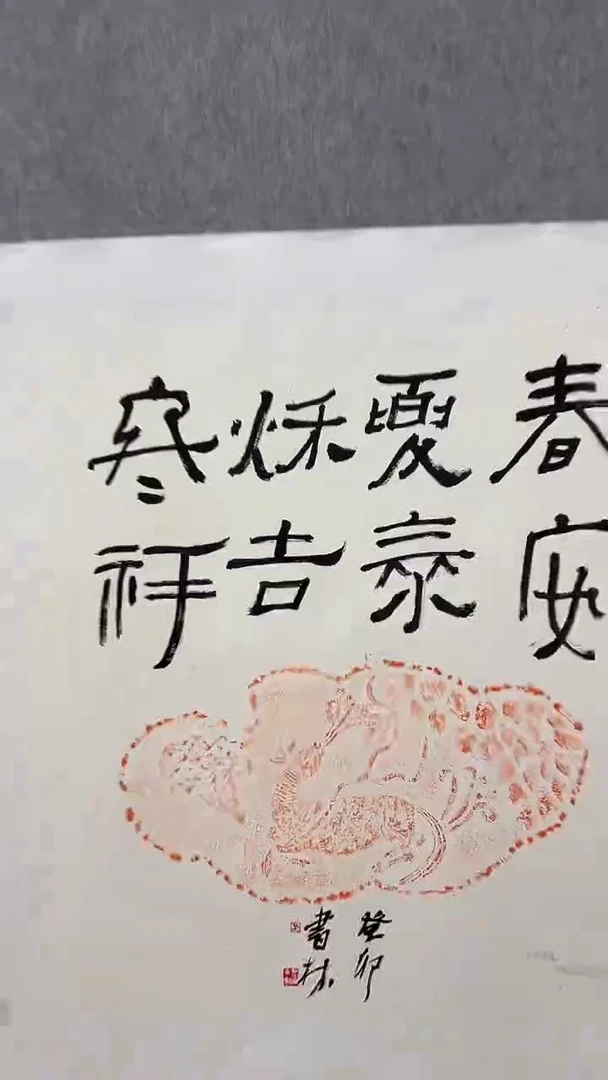 春安
夏泰
秌吉
冬祥
癸卯
書林